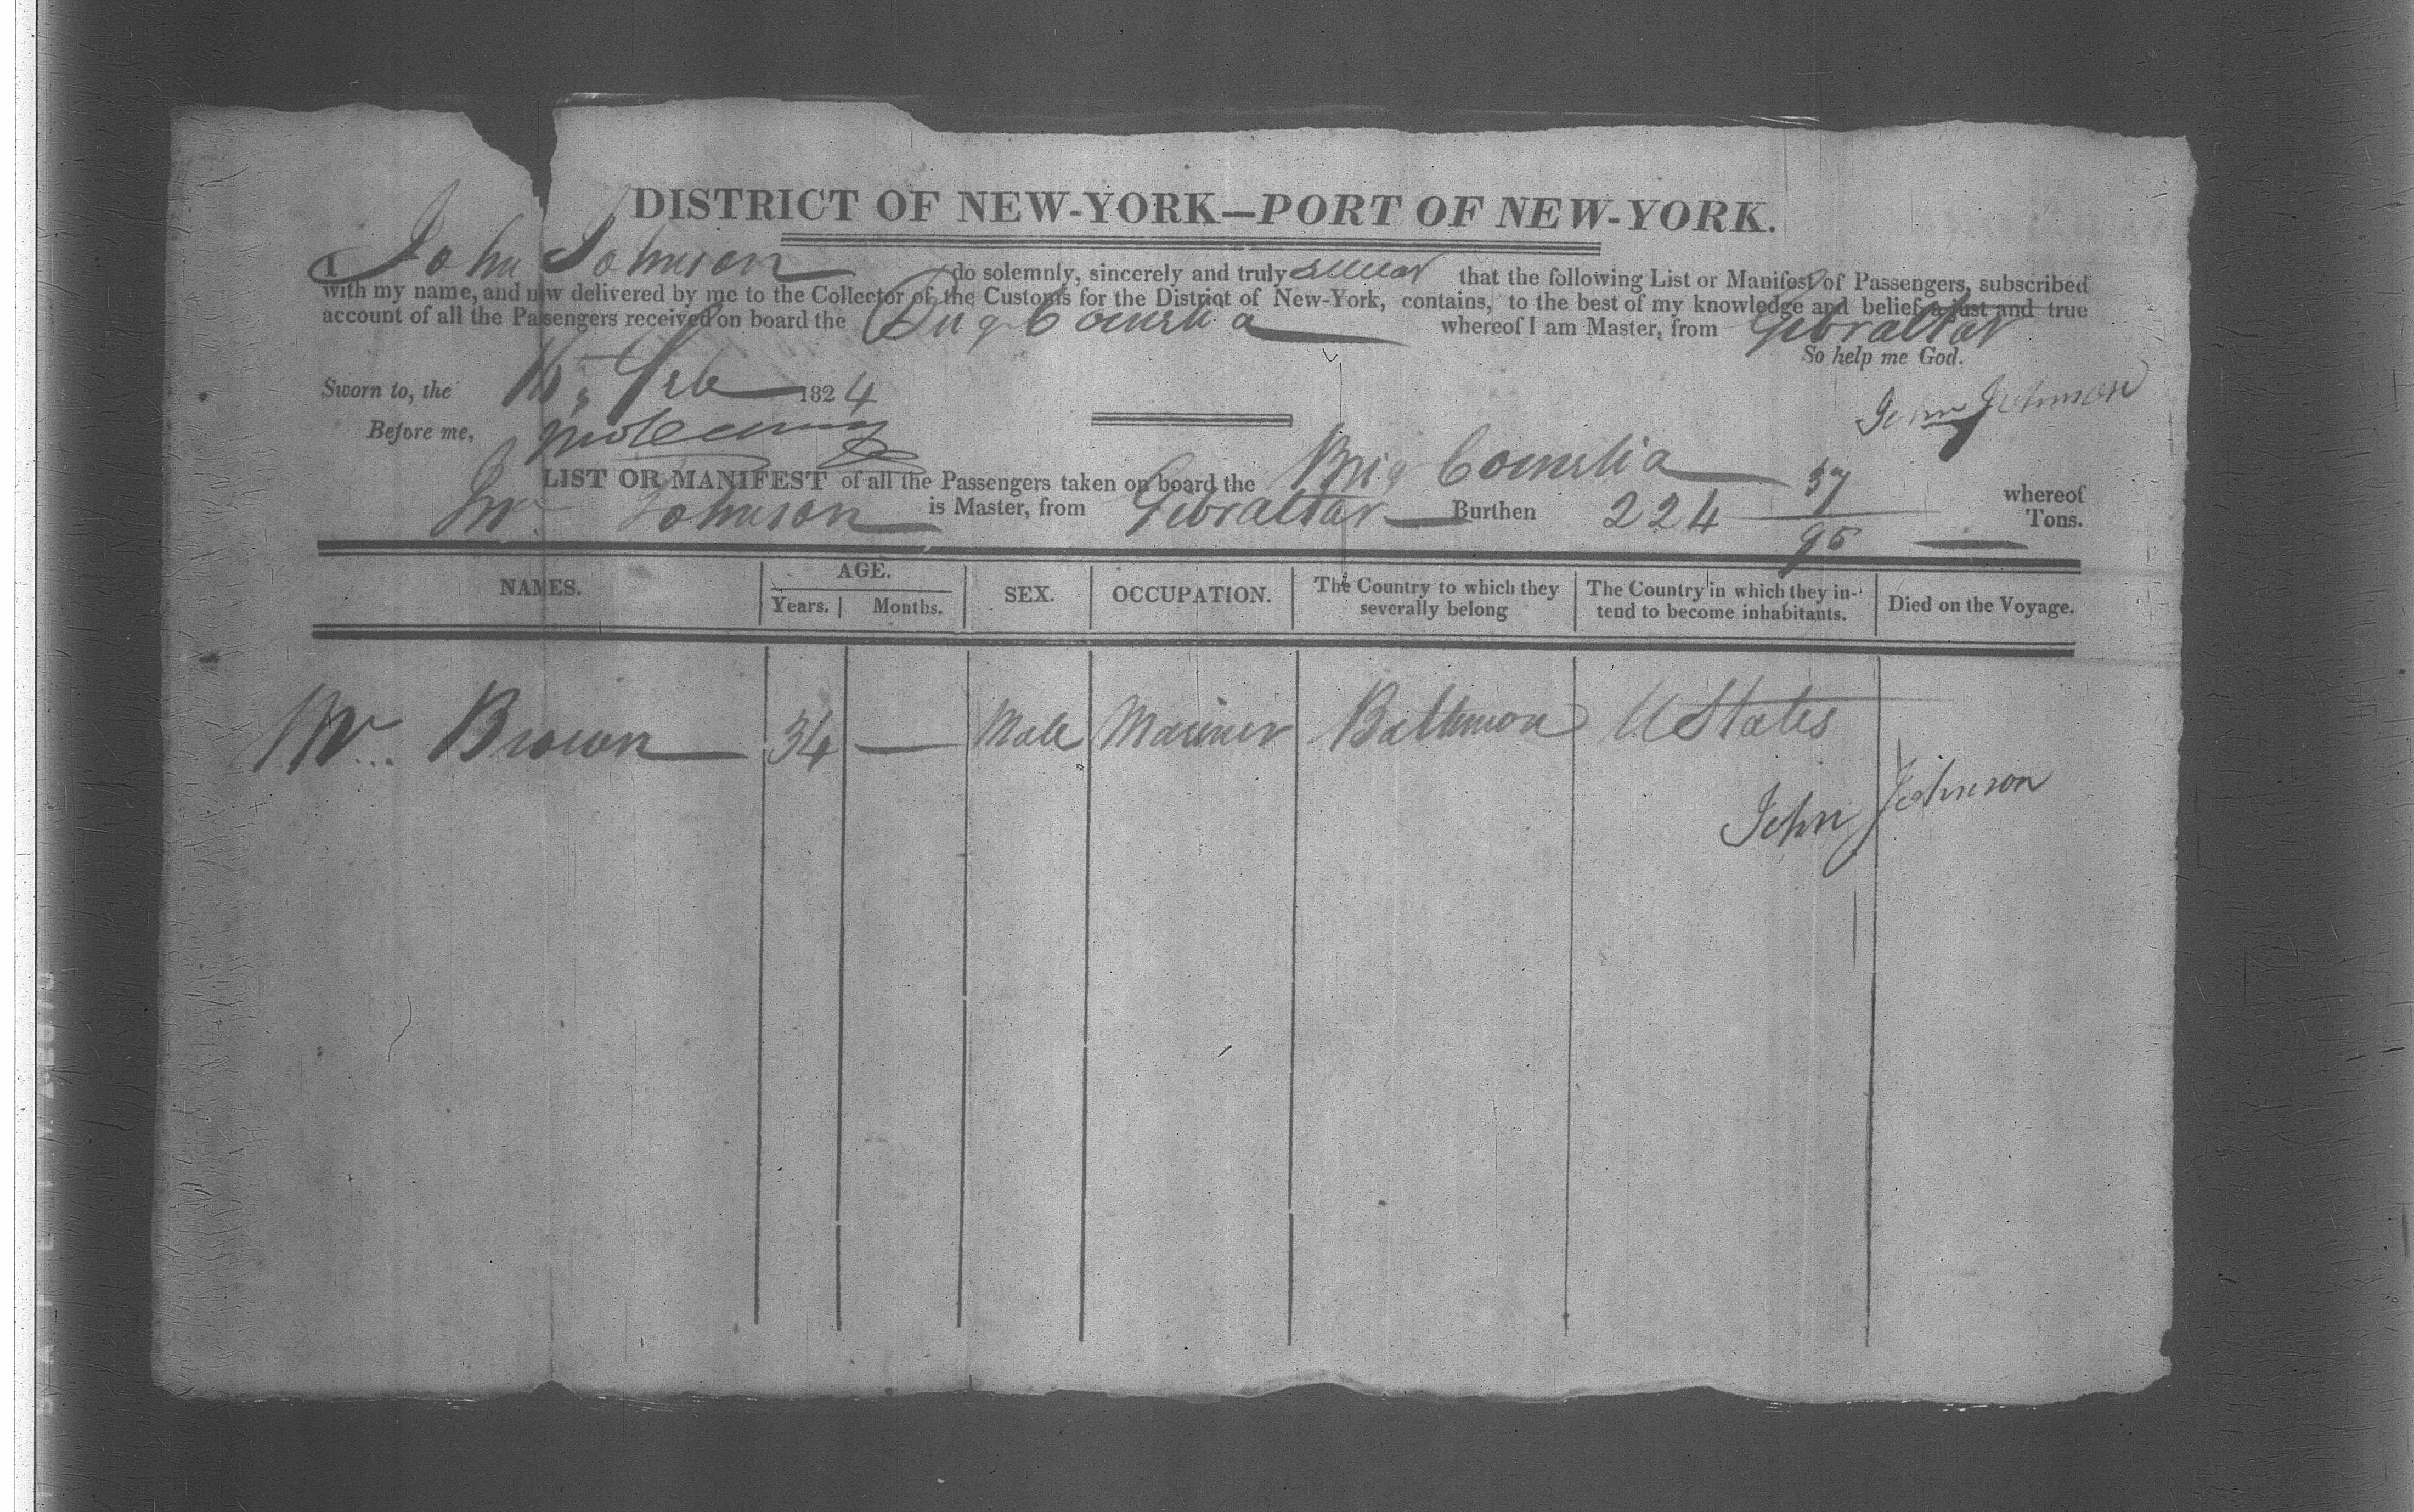 DISTRICT OF NEW-YORK—PORT OF NEW-YORK.
I John Johnson do solemnly, sincerely and truly swear that the following List or Manifest of Passengers, subscribed
with my name, and now delivered by me to the Collector of the Customs for the District of New-York, contains, to the best of my knowledge and belief, a just and true
account of all the Passengers received on board the Brig Cornelia whereof I am Master, from Gibraltar
So help me God.
Sworn to, the Feb 1824
John Johnson
Before me,
LIST OR MANIFEST of all the Passengers taken on board the Brig Cornelia whereof
Johnson is Master, from Gibraltar Burthen 224 37/95 Tons.
NAMES. AGE. Years. Months. SEX. OCCUPATION. The Country to which they severally belong The Country in which they intend to become inhabitants. Died on the Voyage.
Brown 34 — Male Mariner Baltimore U States
John Johnson